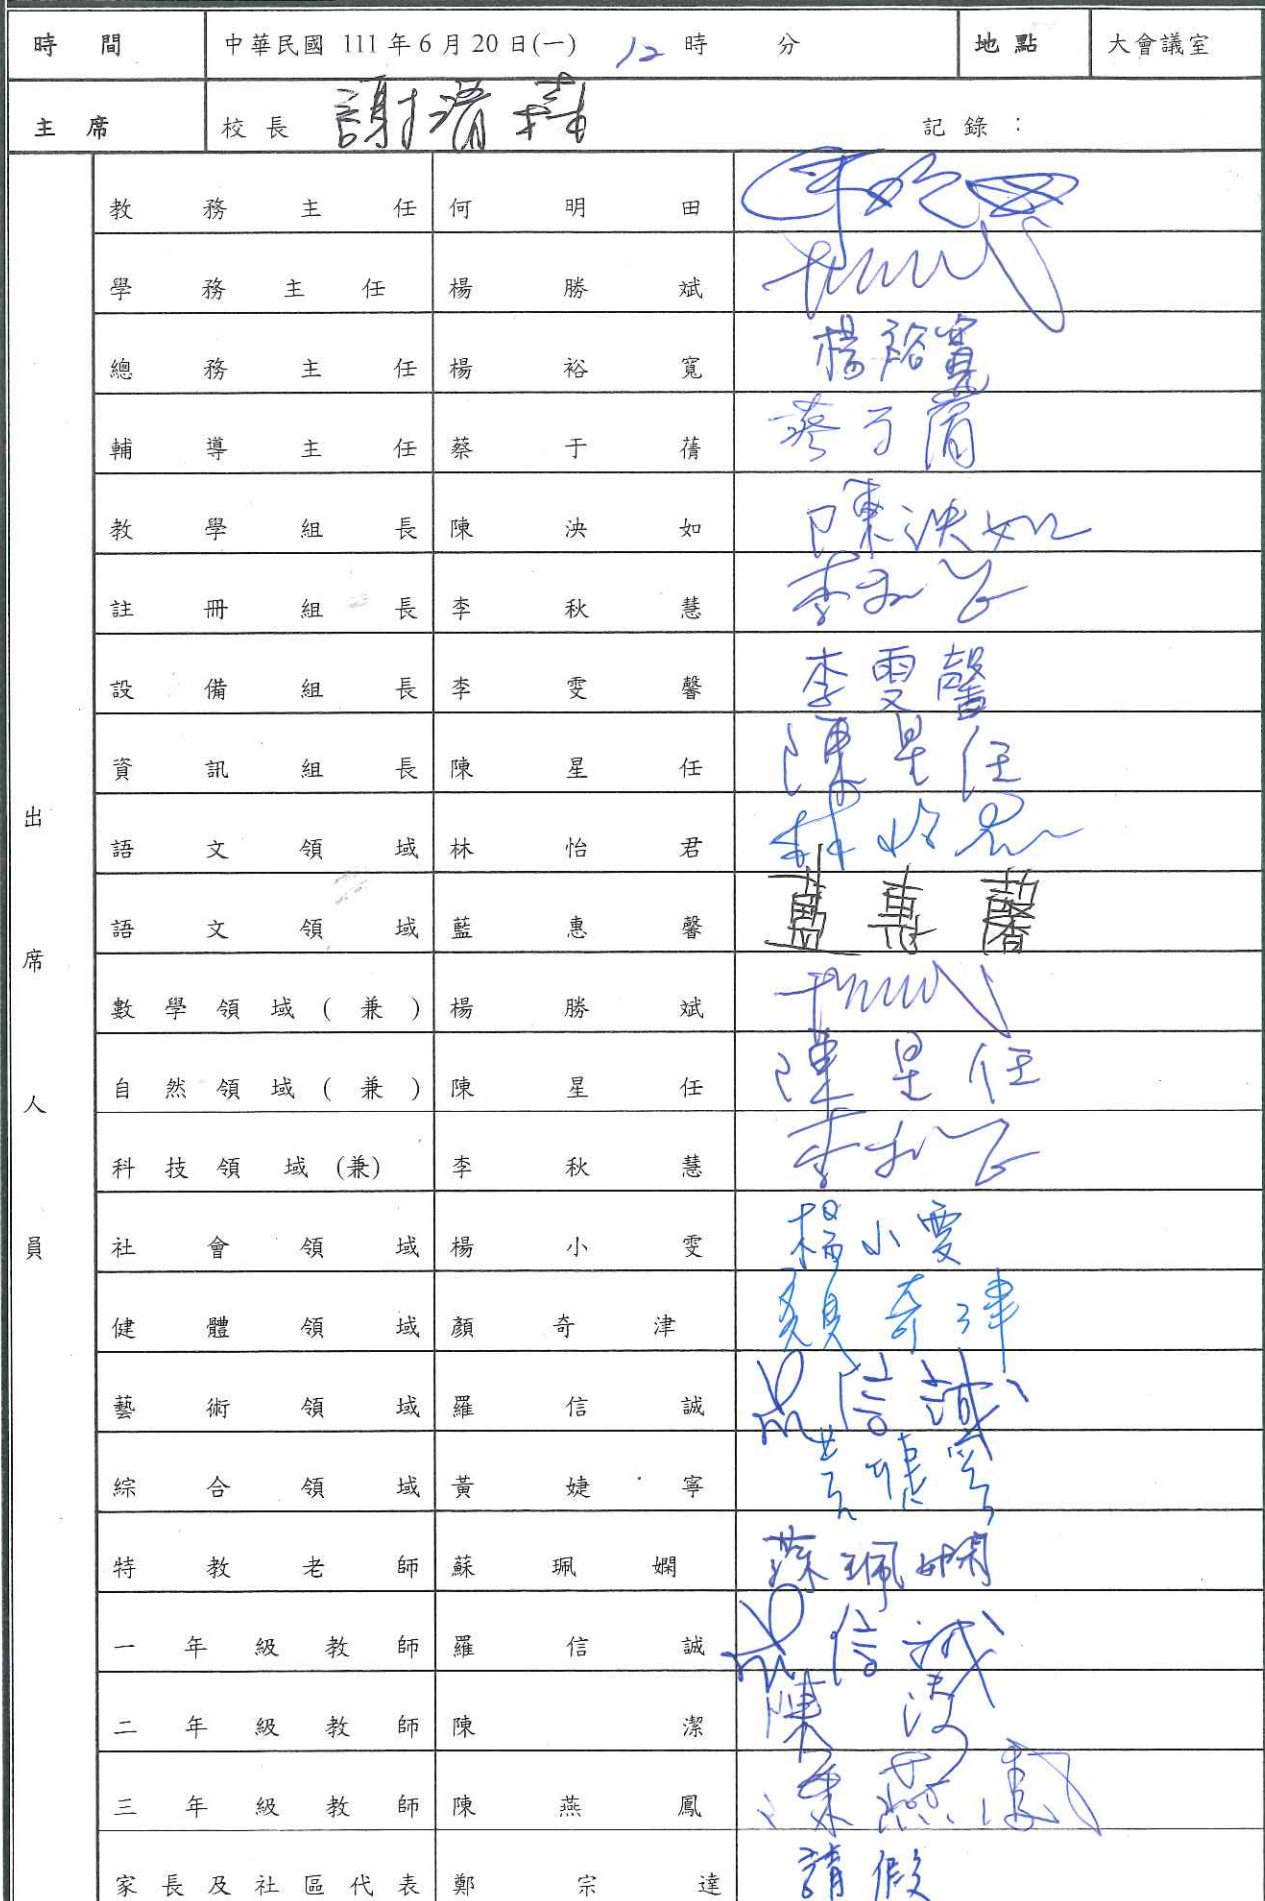 時間 中華民國 111 年 6 月 20 日(一) 12 時 分 地點 大會議室
主席 校長 記錄：
出席人員
教務主任 何明田
學務主任 楊勝斌
總務主任 楊裕寬 楊裕寬
輔導主任 蔡于蒨 蔡于蒨
教學組長 陳泱如 陳泱如
註冊組長 李秋慧
設備組長 李雯馨 李雯馨
資訊組長 陳星任 陳星任
語文領域 林怡君 林怡君
語文領域 藍惠馨 藍惠馨
數學領域(兼) 楊勝斌
自然領域(兼) 陳星任 陳星任
科技領域(兼) 李秋慧
社會領域 楊小雯 楊小雯
健體領域 顏奇津 顏奇津
藝術領域 羅信誠 羅信誠
綜合領域 黃婕寧 黃婕寧
特教老師 蘇珮嫻 蘇珮嫻
一年級教師 羅信誠 羅信誠
二年級教師 陳潔 陳潔
三年級教師 陳燕鳳 陳燕鳳
家長及社區代表 鄭宗達 請假